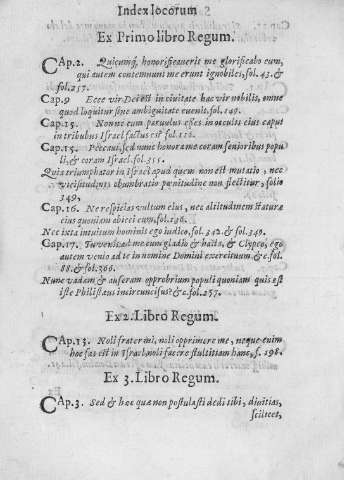 Index locorum
Ex Primo libro Regum.
CAp.2. Quicumq; honorificauerit me glorificabo eum,
qui autem contemnunt me erunt ignobiles, fol. 43. &
fol. 257.
Cap.9 Ecce vir Dei est in ciuitate hac vir nobilis, omne
quod loquitur sine ambiguitate euenit, fol. 149.
Cap.15. Nonne cum paruulus esses in oculis eius caput
in tribubus Israel factus est fol. 110.
Cap.15. Peccaui, sed nunc honora me coram senioribus popu
li, & coram Israel. fol. 355.
Quia triumphator in Israel apud quem non est mutatio, nec
vicisitudinis obumbratio pœnitudine non flectitur, folio
349,
Cap.16. Ne respicias vultum eius, nec altitudinem staturæ
eius quoniam abieci eum, fol. 196.
Nec ixta intuitum hominis ego iudico, fol. 342. & fol. 349.
Cap.17. Tu venis ad me cum gladio & hasta, & Clypeo, ego
autem venio ad te in nomine Domini exercituum & c. fol.
88. & fol. 366.
Nunc vadam & auferam opprobrium populi quoniam quis est
iste Philistæus incircuncisus? & c. fol. 257.
Ex 2. Libro Regum.
CAp.13. Noli frater mi, noli opprimere me, neque enim
hoc fas est in Israel, noli facere stultitiam hanc, f. 198.
Ex 3. Libro Regum.
CAp.3. Sed & hæc quæ non postulasti dedi tibi, diuitias,
scilicet,